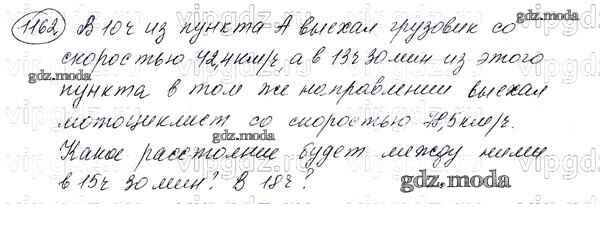 1162) В 10ч из пункта А выехал грузовик со
скоростью 42,4км/ч, а в 13ч 30мин из этого
gdz.moda
gdz.moda
пункта в том же направлении выехал
мотоциклист со скоростью 78,5км/ч.
gdz.moda
Какое расстояние будет между ними
в 15ч 30мин? В 18ч?
gdz.moda